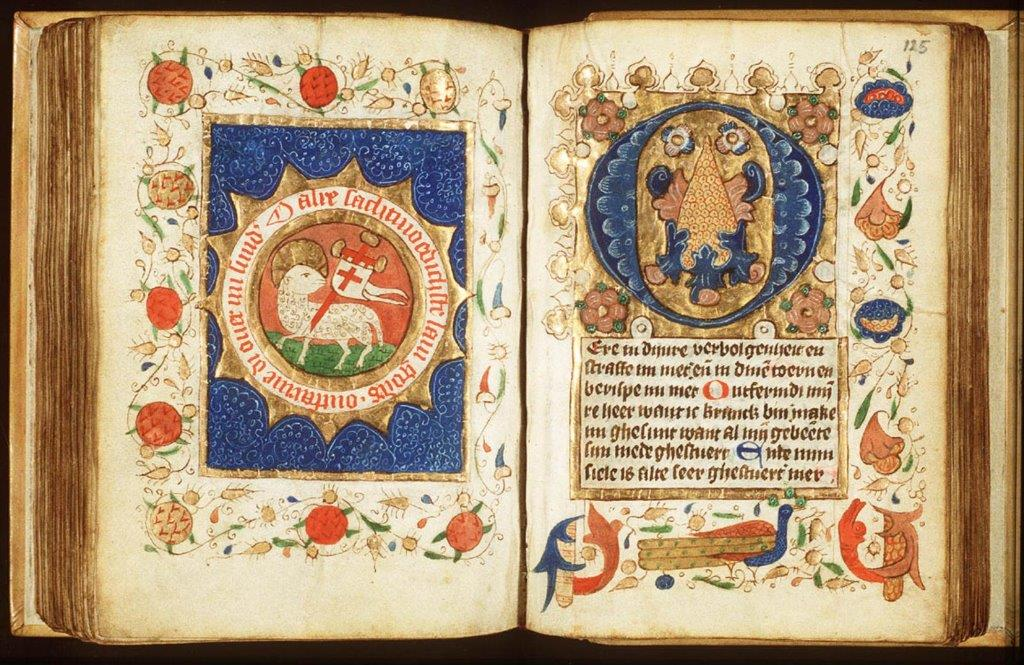 O alre sachtmoedichste lam godes ontfarme di ouer mi
125
Ere in dijnre verbolgenheit en
straffe mi niet eñ in dinē toern en
berispe mi niet Ontfermdi mijn
re heer want ic kranck bin make
mi ghesunt want al mijn gebeente
sijn mede ghestuert Ende mijn
siele is alte seer ghestuert mer